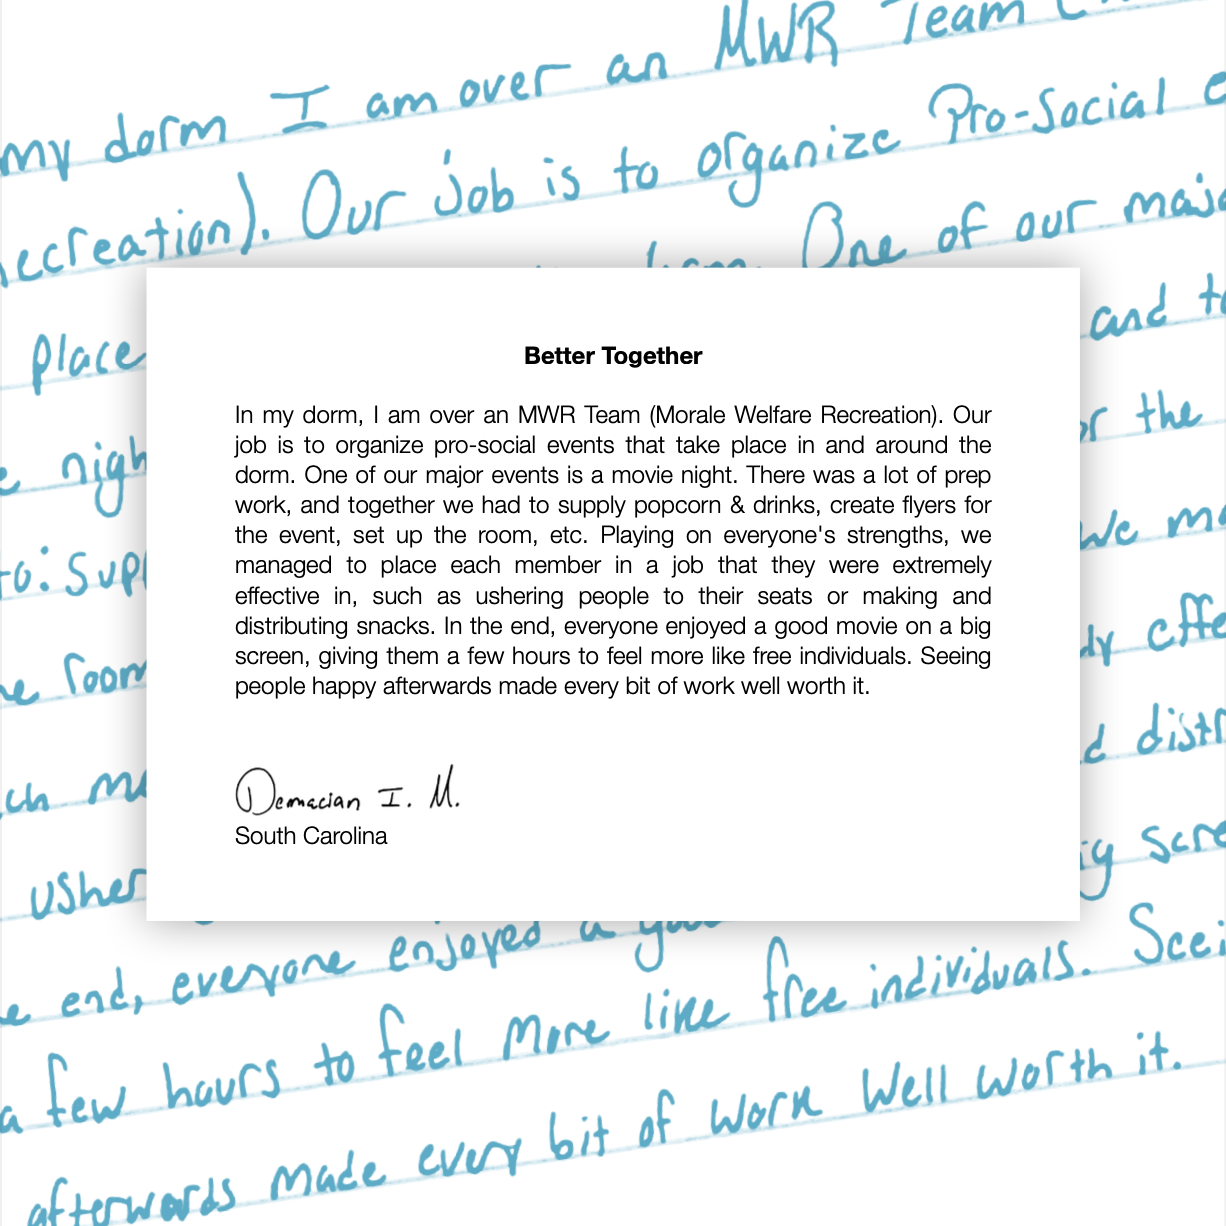 my dorm I am over an MWR Team
ecreation). Our job is to organize Pro-Social
One of our
place
and
the
We
to: Supp
room
distr
usher
end, everyone enjoyed a
a few hours to feel more like free individuals. Seei
afterwords made every bit of work well worth it.
Better Together
In my dorm, I am over an MWR Team (Morale Welfare Recreation). Our
job is to organize pro-social events that take place in and around the
dorm. One of our major events is a movie night. There was a lot of prep
work, and together we had to supply popcorn & drinks, create flyers for
the event, set up the room, etc. Playing on everyone's strengths, we
managed to place each member in a job that they were extremely
effective in, such as ushering people to their seats or making and
distributing snacks. In the end, everyone enjoyed a good movie on a big
screen, giving them a few hours to feel more like free individuals. Seeing
people happy afterwards made every bit of work well worth it.
Demacian I. M.
South Carolina